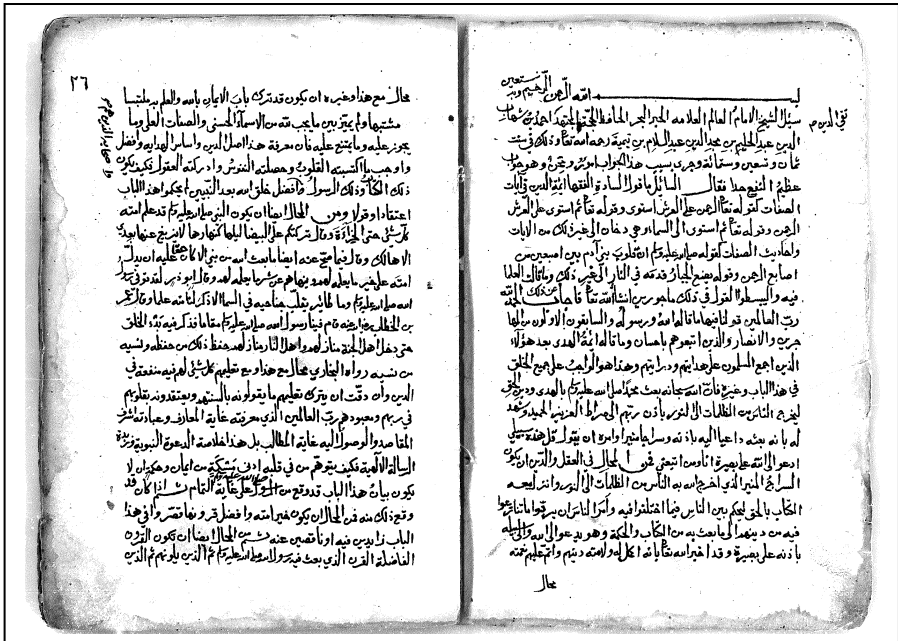 بسم الله الرحمن الرحيم وبه نستعين
سئل الشيخ الامام العالم العلامه الحبر البحر الحافظ المجتهد احمد بن شهاب
تقي الدين
الدين عبد الحليم بن مجد الدين عبد السلام بن تيمية رحمه الله تعالى وذلك في سنة
ثمان وتسعين وستمائة وجرى بسبب هذا الجواب امور ومحن وهو جواب
عظيم النفع جدا فقال السائل ما قول السادة الفقهاء ايمة الدين في ايات
الصفات كقوله تعالى الرحمن على العرش استوى وقوله تعالى ثم استوى على العرش
الرحمن وقوله تعالى ثم استوى الى السماء وهي دخان الى غير ذلك من الايات
واحاديث الصفات كقوله صلى الله عليه وسلم ان قلوب بني آدم بين اصبعين من
اصابع الرحمن وقوله يضع الجبار قدمه في النار الى غير ذلك وما قاله العلما
فيه وابسطوا القول في ذلك ماجورين ان شاء الله تعالى فاجاب عن ذلك الحمد لله
رب العالمين قولنا فيها ما قاله الله ورسوله والسابقون الاولون من المها
جرين والانصار والذين اتبعوهم باحسان وما قاله ايمة الهدى بعد هؤلاء
الذين اجمع المسلمون على هدايتهم ودرايتهم وهذا هو الواجب على جميع الخلق
في هذا الباب وغيره فان الله سبحانه بعث محمدا صلى الله عليه وسلم بالهدى ودين الحق
ليخرج الناس من الظلمات الى النور باذن ربهم الى صراط العزيز الحميد وشهد
له بانه بعثه داعيا اليه باذنه وسراجا منيرا وامره ان يقول قل هذه سبيلي
ادعو الى الله على بصيرة انا ومن اتبعني فمن المحال في العقل والدين ان يكون
السراج المنير الذي اخرج الله به الناس من الظلمات الى النور وانزل معه
الكتاب بالحق ليحكم بين الناس فيما اختلفوا فيه وامر الناس ان يردوا ما تنازعوا
فيه من دينهم الى ما بعث به من الكتاب والحكمة وهو يدعو الى الله والى سبيله
باذنه على بصيرة وقد اخبر الله تعالى بانه اكمل له ولامته دينهم واتم عليهم نعمته
محال
٢٦
محال مع هذا وغيره ان يكون قد ترك باب الايمان بالله والعلم به ملتبسا
مشتبها ولم يميز بين ما يجب لله من الاسماء الحسنى والصفات العلى وما
يجوز عليه وما يمتنع عليه فان معرفة هذا اصل الدين واساس الهداية وافضل
واوجب ما اكتسبته القلوب وحصلته النفوس وادركته العقول فكيف يكون
ذلك الكتاب وذلك الرسول وافضل خلق الله بعد النبيين لم يحكموا هذا الباب
اعتقادا وقولا ومن المحال ايضا ان يكون النبي صلى الله عليه وسلم قد علم امته
كل شيء حتى الخراءة وقال تركتكم على البيضاء ليلها كنهارها لا يزيغ عنها بعدي
الا هالك وقال فيما صح عنه ايضا ما بعث الله من نبي الا كان حقا عليه ان يدل
امته على خير ما يعلمه لهم وينهاهم عن شر ما يعلمه لهم وقال ابو ذر لقد توفي رسول
الله صلى الله عليه وسلم وما طائر يقلب جناحيه في السماء الا ذكر لنا منه علما وقال عمر
بن الخطاب رضي الله عنه قام فينا رسول الله صلى الله عليه وسلم مقاما فذكر فيه بدء الخلق
حتى دخل اهل الجنة منازلهم واهل النار منازلهم حفظ ذلك من حفظه ونسيه
من نسيه رواه البخاري محال مع هذا ومع تعليمهم كل شيء لهم فيه منفعة في
الدين وان دقت ان يترك تعليمهم ما يقولونه بالسنتهم ويعتقدونه بقلوبهم
في ربهم ومعبودهم رب العالمين الذي معرفته غاية المعارف وعبادته اشرف
المقاصد والوصول اليه غاية المطالب بل هذا خلاصة الدعوة النبوية وزبدة
الرسالة الالهية فكيف يتوهم من في قلبه ادنى مسكة من ايمان وحكمة ان لا
يكون بيان هذا الباب قد وقع من الرسول على غاية التمام ثم اذا كان قد
وقع ذلك منه فمن المحال ان يكون خير امته وافضل قرونها قصروا في هذا
الباب زايدين فيه او ناقصين عنه ثم من المحال ايضا ان تكون القرون
الفاضلة القرن الذي بعث فيه رسول الله صلى الله عليه وسلم ثم الذين يلونهم ثم الذين